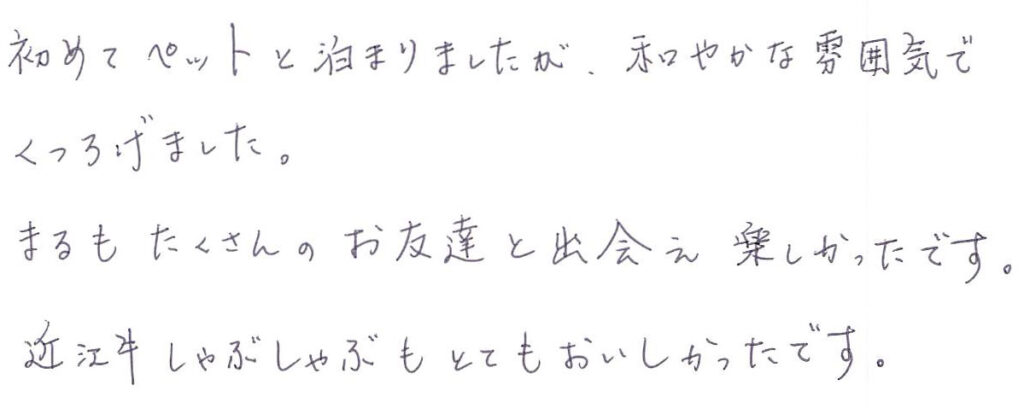 初めてペットと泊まりましたが、和やかな雰囲気で
くつろげました。
まるも たくさんの お友達と出会え 楽しかったです。
近江牛しゃぶしゃぶもとてもおいしかったです。